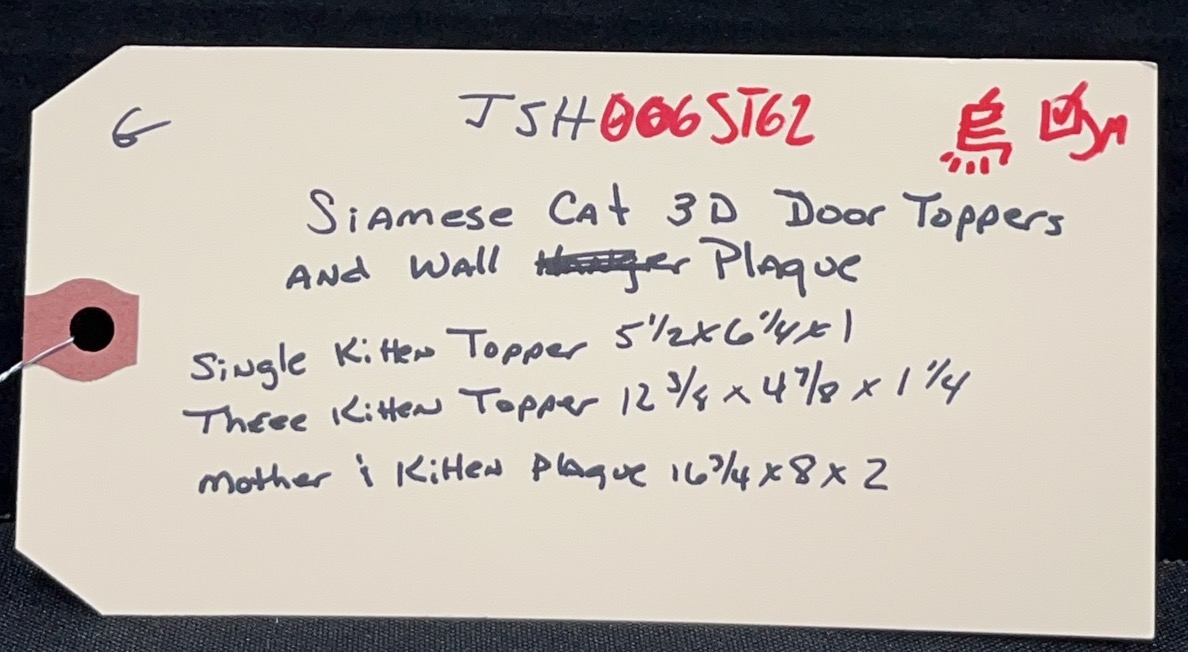 G JSH006ST62
Siamese Cat 3D Door Toppers
And Wall Plaque
Single Kitten Topper 5 1/2 x 6 1/4 x 1
Three Kitten Topper 12 3/8 x 4 7/8 x 1 1/4
Mother & Kitten Plaque 16 3/4 x 8 x 2